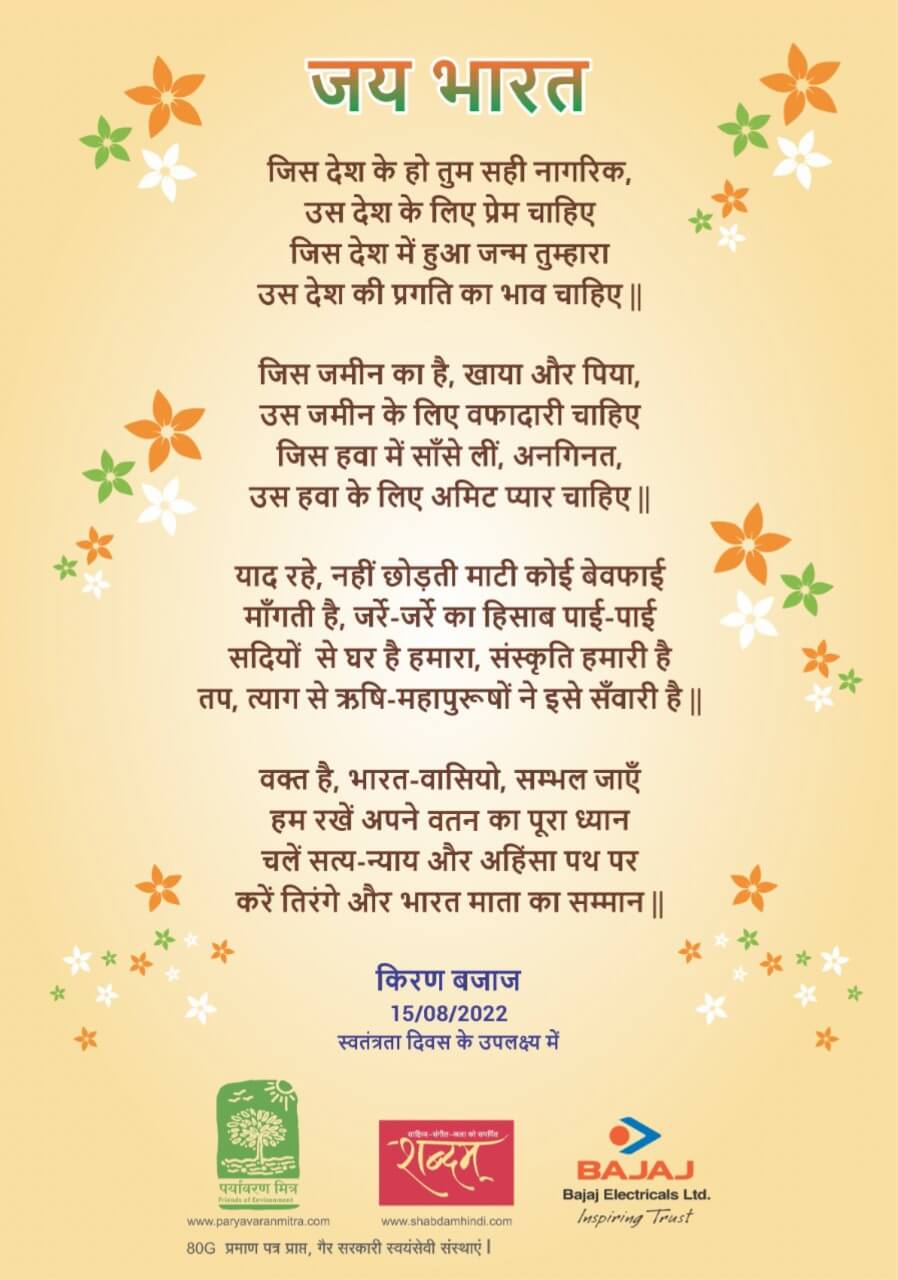 जय भारत
जिस देश के हो तुम सही नागरिक,
उस देश के लिए प्रेम चाहिए
जिस देश में हुआ जन्म तुम्हारा
उस देश की प्रगति का भाव चाहिए ||
जिस जमीन का है, खाया और पिया,
उस जमीन के लिए वफादारी चाहिए
जिस हवा में साँसे लीं, अनगिनत,
उस हवा के लिए अमिट प्यार चाहिए ||
याद रहे, नहीं छोड़ती माटी कोई बेवफाई
माँगती है, जर्रे-जर्रे का हिसाब पाई-पाई
सदियों से घर है हमारा, संस्कृति हमारी है
तप, त्याग से ऋषि-महापुरूषों ने इसे सँवारी है ||
वक्त है, भारत-वासियो, सम्भल जाएँ
हम रखें अपने वतन का पूरा ध्यान
चलें सत्य-न्याय और अहिंसा पथ पर
करें तिरंगे और भारत माता का सम्मान ||
किरण बजाज
15/08/2022
स्वतंत्रता दिवस के उपलक्ष्य में
पर्यावरण मित्र
Friends of Environment
www.paryavaranmitra.com
साहित्य-संगीत-कला को समर्पित
शब्दम्
www.shabdamhindi.com
BAJAJ
Bajaj Electricals Ltd.
Inspiring Trust
80G प्रमाण पत्र प्राप्त, गैर सरकारी स्वयंसेवी संस्थाएं |